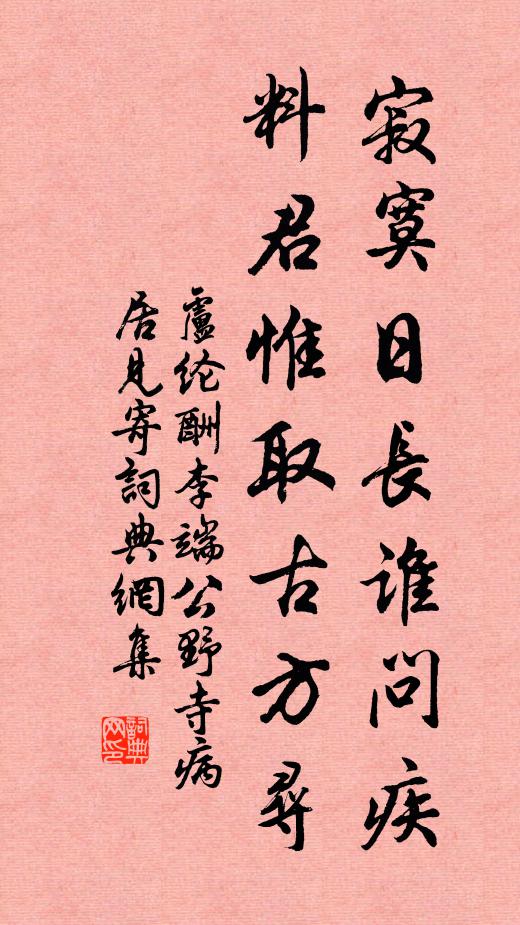 寂寞日長誰問疾
料君惟取古方尋
盧纶酬李端公野寺病
居見寄詞典網集
詞典
网印